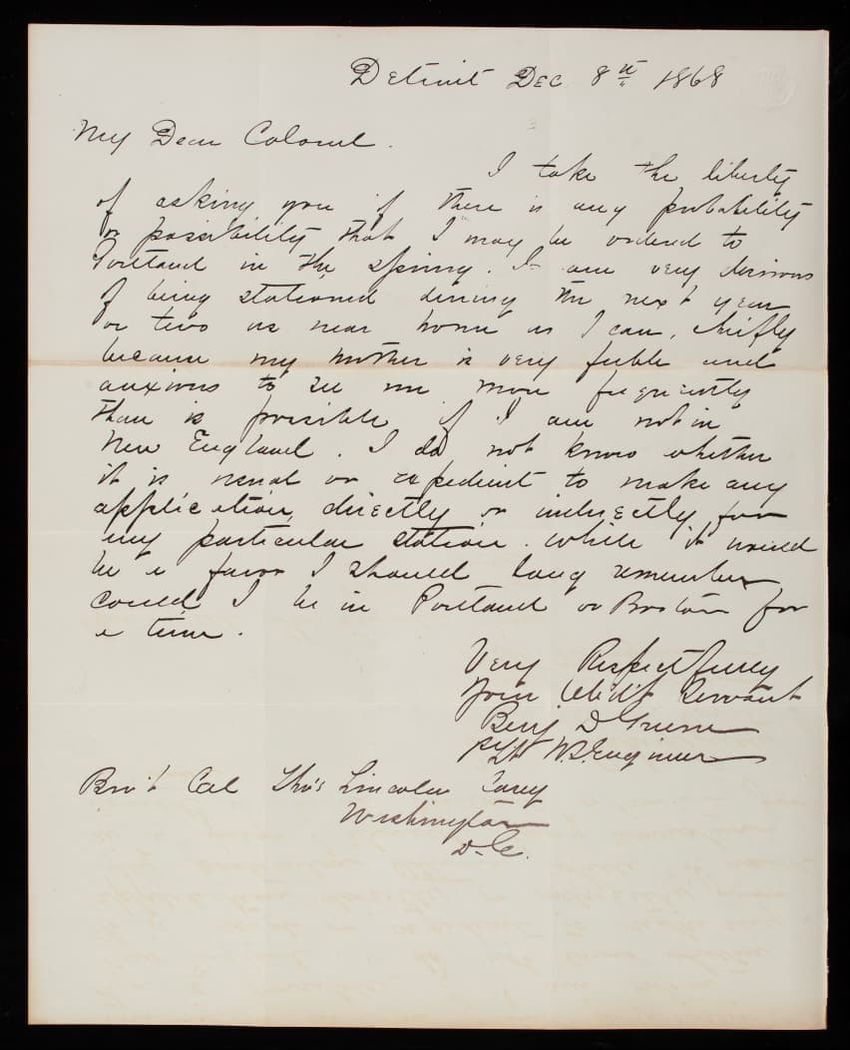 Detroit Dec 8th 1868
My Dear Colonel.
I take the liberty
of asking you if there is any probability
or possibility that I may be ordered to
Portland in the spring. I am very desirous
of being stationed during the next year
or two as near home as I can, chiefly
because my mother is very feeble and
anxious to see me more frequently
than is possible if I am not in
New England. I do not know whether
it is usual or expedient to make any
application, directly or indirectly, for
any particular station. While it would
be a favor I should long remember
could I be in Portland or Boston for
a time.
Very Respectfully
Your Obd't Servant
Benj D Greene
Lt U.S. Engineers
Brv't Col Tho's Lincoln Casey
Washington
D.C.